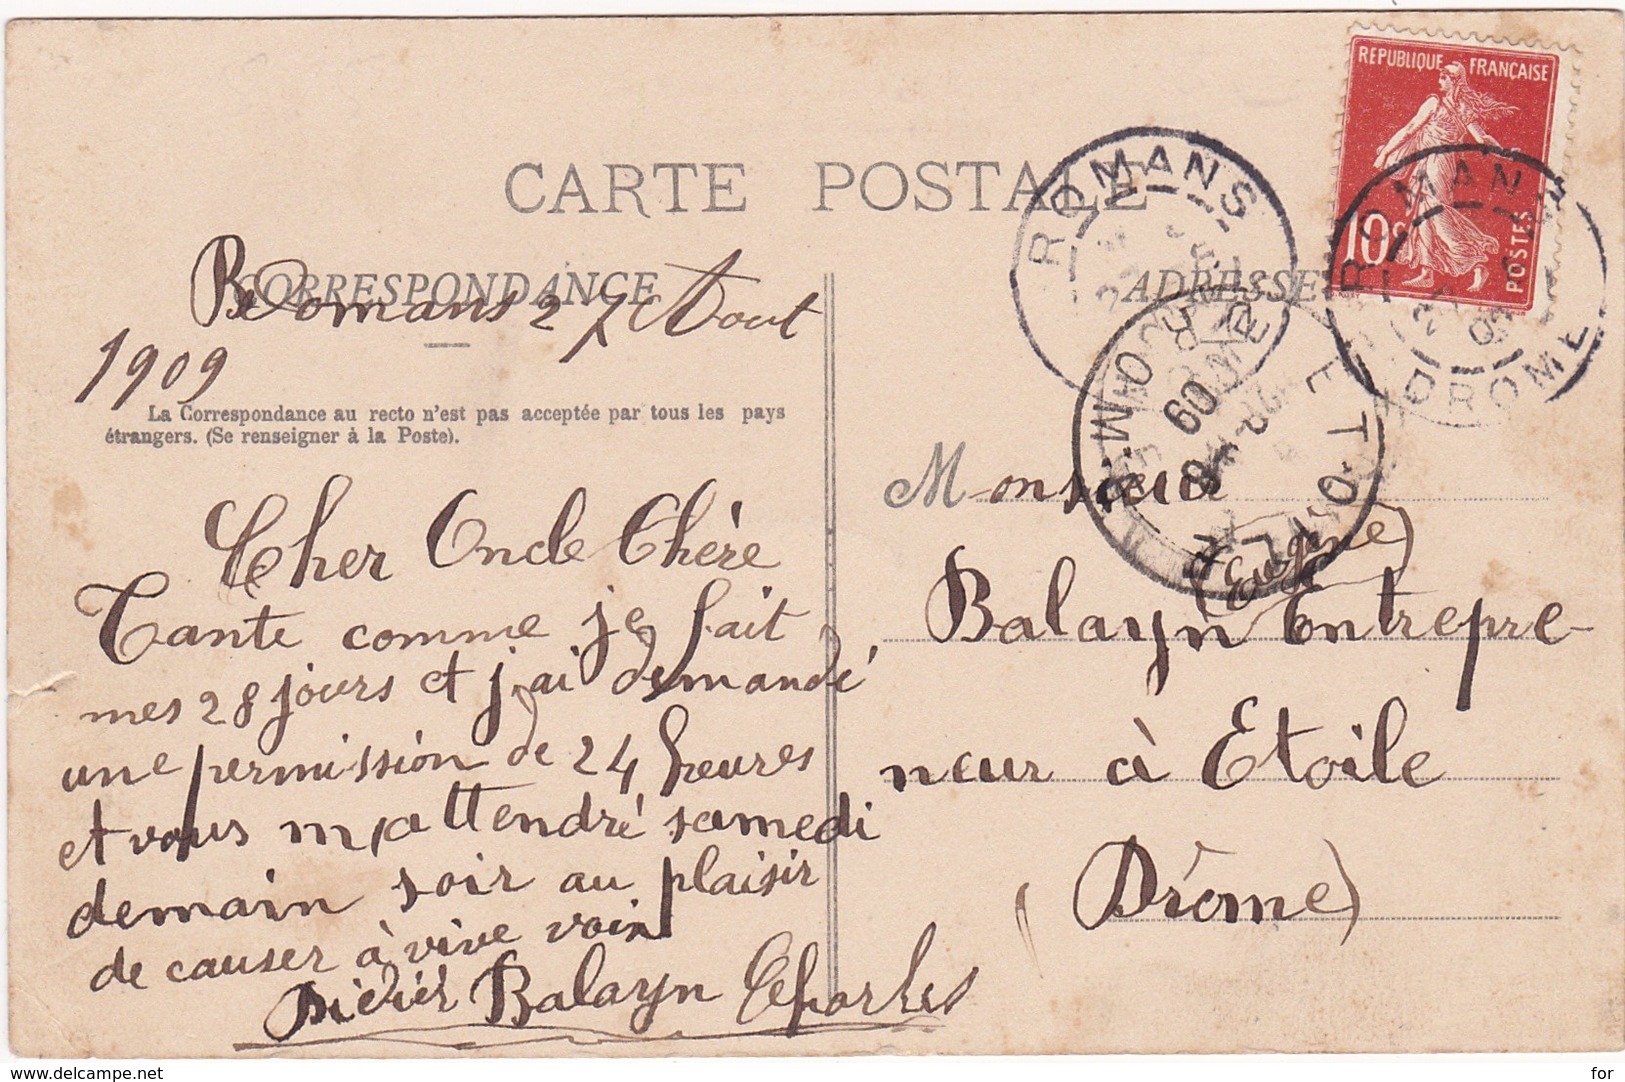 REPUBLIQUE FRANÇAISE
10c
POSTES
CARTE POSTALE
ROMANS
ROMANS
DROME
CORRESPONDANCE
ADRESSE
Romans 27 Aout
1909
ETOILE
DROME
09
La Correspondance au recto n'est pas acceptée par tous les pays
étrangers. (Se renseigner à la Poste).
Cher Oncle Chère
Tante comme je fait
mes 28 jours et j,ai demandé
une permission de 24 heures
et vous m,attendré samedi
demain soir au plaisir
de causer à vive voix
Didier Balayn Charles
Monsieur
(Eugène)
Balayn Entrepre-
neur à Etoile
(Drome)
delcampe.net
for